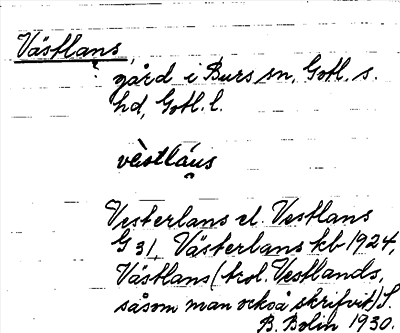 Västlans,
gård i Burs sn, Gotl. s.
hd, Gotl. l.
vèstláus
Vesterlans el. Vestlans
G 31, Västerlans kb 1924,
Västlans (trol. Vestlands,
såsom man också skrifvit) S.
B. Bolin 1930.